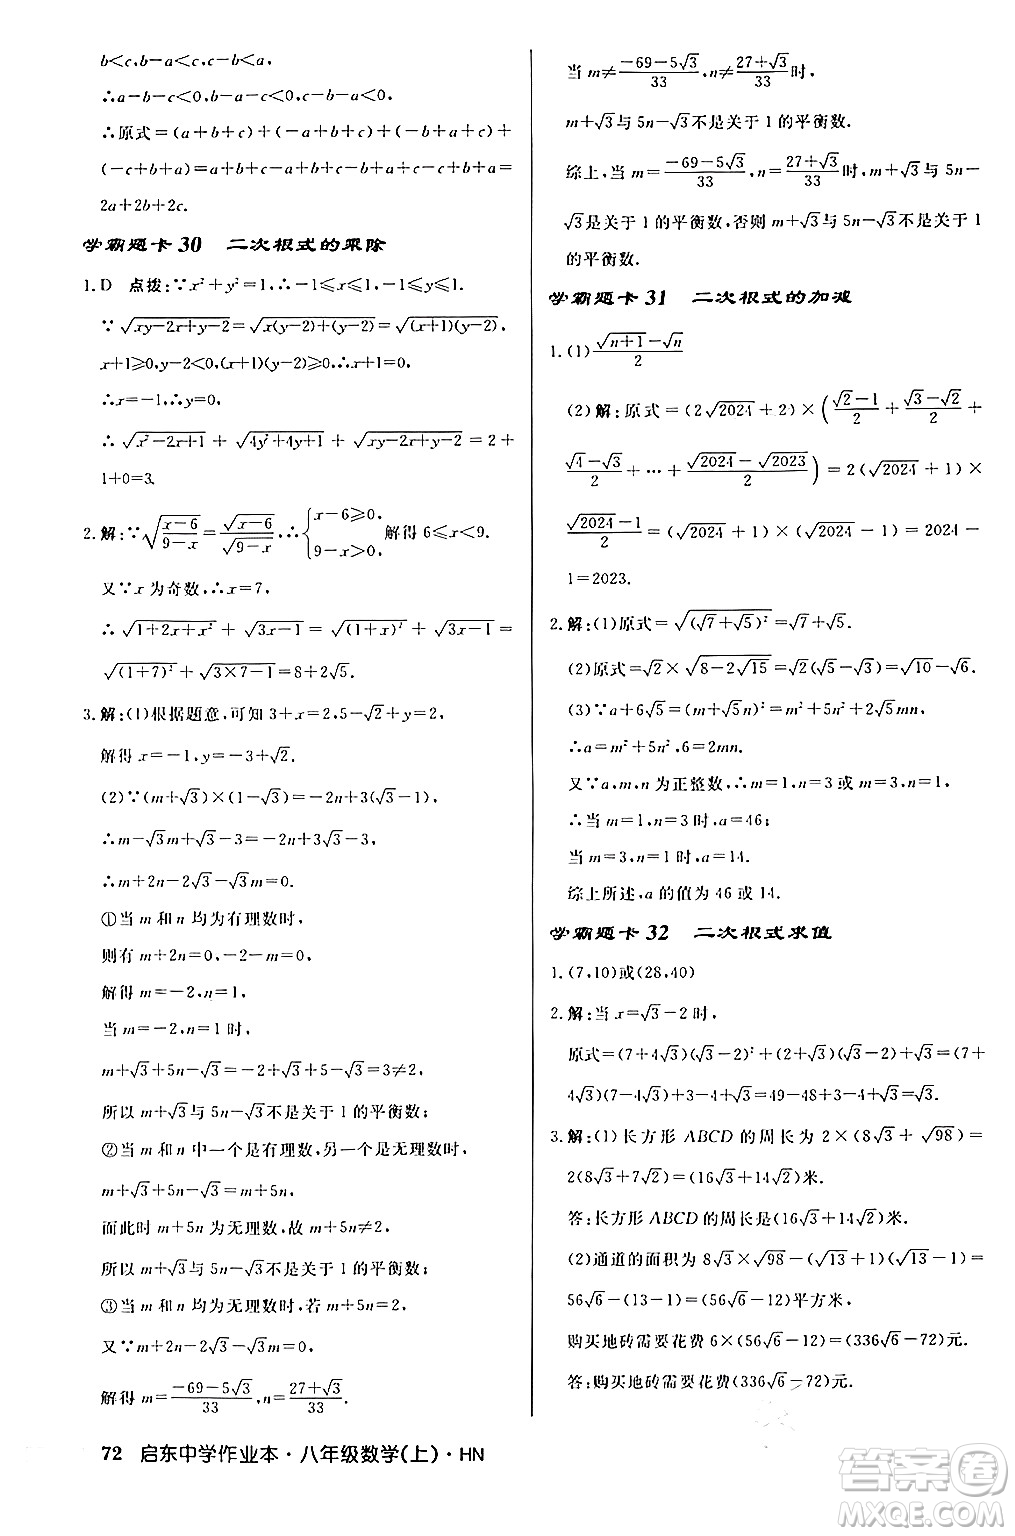 b<c,b-a<c,c-b<a,
∴a-b-c<0,b-a-c<0,c-b-a<0.
∴原式=(a+b+c)+(-a+b+c)-(b-a-c)+
(-c+b+a)=a+b+c-a+b+c-b+a+c-c+b+a=
2a+2b+2c.
学霸题卡 30 二次根式的乘除
1.D 点拨:∵x²+y²=1,∴-1≤x≤1,-1≤y≤1.
∵√(xy-2x+y-2)=√(x(y-2)+(y-2))=√((x+1)(y-2)),
x+1≥0,y-2<0,(x+1)(y-2)≥0.∴x+1=0,
∴x=-1,∴y=0.
∴√(x²-2x+1)+√(4y²+4y+1)+√(xy-2x+y-2)=2+
1+0=3.
2.解:∵√((x-6)/(9-x))=√(x-6)/√(9-x),∴{x-6≥0, 9-x>0. 解得 6≤x<9.
又∵x 为奇数,∴x=7,
∴√(1+2x+x²)+√(3x-1)=√((1+x)²)+√(3x-1)=
√((1+7)²)+√(3×7-1)=8+2√5.
3.解:(1)根据题意,可知 3+x=2,5-√2+y=2,
解得 x=-1,y=-3+√2.
(2)∵(m+√3)×(1-√3)=-2n+3(√3-1),
∴m-√3m+√3-3=-2n+3√3-3.
∴m+2n-2√3-√3m=0.
①当 m 和 n 均为有理数时,
则有 m+2n=0,-2-m=0,
解得 m=-2,n=1,
当 m=-2,n=1 时,
m+√3+5n-√3=-2+√3+5-√3=3≠2,
所以 m+√3与 5n-√3不是关于 1 的平衡数;
②当 m 和 n 中一个是有理数,另一个是无理数时,
m+√3+5n-√3=m+5n,
而此时 m+5n 为无理数,故 m+5n≠2,
所以 m+√3与 5n-√3不是关于 1 的平衡数;
③当 m 和 n 均为无理数时,若 m+5n=2,
又∵m+2n-2√3-√3m=0,
解得 m=(-69-5√3)/33,n=(27+√3)/33.
当 m≠(-69-5√3)/33,n≠(27+√3)/33时,
m+√3与 5n-√3不是关于 1 的平衡数.
综上,当 m=(-69-5√3)/33,n=(27+√3)/33时,m+√3与 5n-
√3是关于 1 的平衡数,否则 m+√3与 5n-√3不是关于
1 的平衡数.
学霸题卡 31 二次根式的加减
1.(1)(√(n+1)-√n)/2
(2)解:原式=(2√2024+2)×((√2-1)/2+(√3-√2)/2+
(√4-√3)/2+…+(√2024-√2023)/2)=2(√2024+1)×
(√2024-1)/2=(√2024+1)×(√2024-1)=2024-
1=2023.
2.解:(1)原式=√((√7+√5)²)=√7+√5.
(2)原式=√2×√(8-2√15)=√2×(√5-√3)=√10-√6.
(3)∵a+6√5=(m+√5n)²=m²+5n²+2√5mn,
∴a=m²+5n²,6=2mn.
又∵a,m,n 为正整数,∴m=1,n=3 或 m=3,n=1,
∴当 m=1,n=3 时,a=46;
当 m=3,n=1 时,a=14.
综上所述,a 的值为 46 或 14.
学霸题卡 32 二次根式求值
1.(7,10)或(28,40)
2.解:当 x=√3-2时,
原式=(7+4√3)(√3-2)²+(2+√3)(√3-2)+√3=(7+
4√3)(7-4√3)+3-4+√3=49-48+3-4+√3=√3.
3.解:(1)长方形 ABCD 的周长为 2×(8√3+√98)=
2(8√3+7√2)=(16√3+14√2)米.
答:长方形 ABCD 的周长是(16√3+14√2)米.
(2)通道的面积为 8√3×√98-(√13+1)(√13-1)=
56√6-(13-1)=(56√6-12)平方米,
购买地砖需要花费 6×(56√6-12)=(336√6-72)元.
答:购买地砖需要花费(336√6-72)元.
72 启东中学作业本·八年级数学(上)·HN
答案圈
MXQE.COM